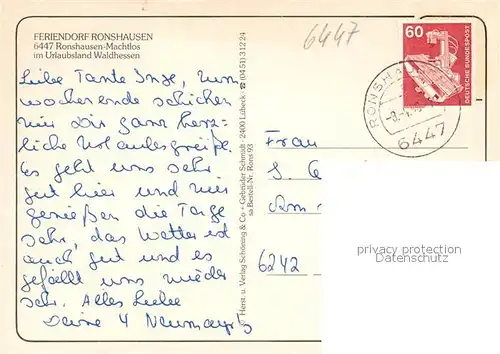 FERIENDORF RONSHAUSEN
6447 Ronshausen-Machtlos
im Urlaubsland Waldhessen
6447
60
DEUTSCHE BUNDESPOST
RONSHAUSEN
6447
Liebe Tante Inge, zum
wochenende schicken
wir Dir ganz herz-
liche Urlaubsgrüße.
Es geht uns sehr
gut hier und wir
genießen die Tage
sehr, das Wetter ist
auch gut und es
gefällt uns wieder
sehr. Alles Liebe
Deine 4
Herst. u. Verlag Schöning & Co + Gebrüder Schmidt · 2400 Lübeck ☎ (04 51) 3 12 24
sa Bestell-Nr. Rons 93
Frau
S.
Am
6242
privacy protection
Datenschutz